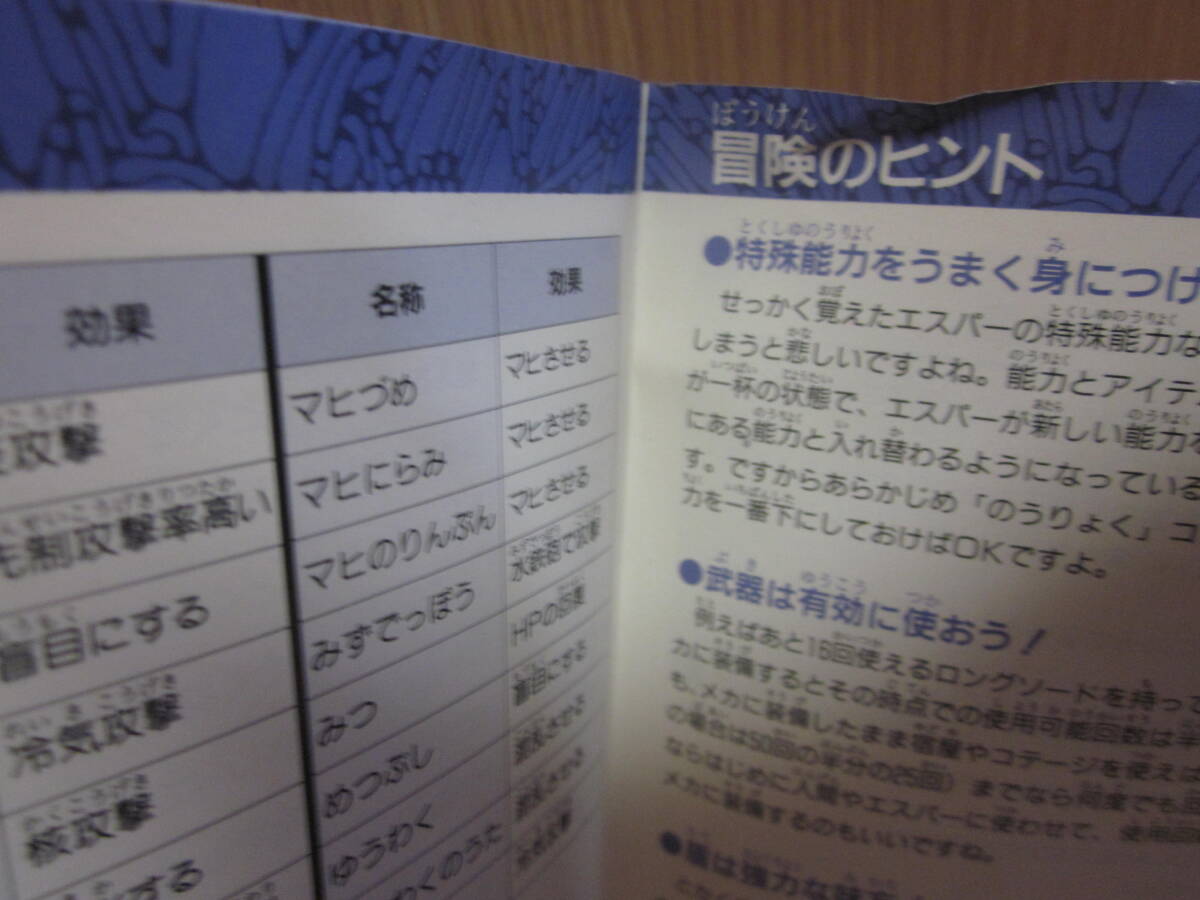 効果
攻撃
制攻撃率高い
盲目にする
冷気攻撃
核攻撃
する
名称
効果
マヒづめ
マヒさせる
マヒにらみ
マヒさせる
マヒのりんぷん
マヒさせる
みずでっぽう
水鉄砲で攻撃
みつ
HPの回復
めつぶし
盲目にする
ゆうわく
混乱させる
わくのうた
混乱させる
冷気攻撃
冒険のヒント
●特殊能力をうまく身につけ
せっかく覚えたエスパーの特殊能力な
しまうと悲しいですよね。能力とアイテ
が一杯の状態で、エスパーが新しい能力を
にある能力と入れ替わるようになっている
す。ですからあらかじめ「のうりょく」コ
力を一番下にしておけばOKですよ。
●武器は有効に使おう！
例えばあと16回使えるロングソードを持って
カに装備するとその時点での使用可能回数は半
も、メカに装備したまま宿屋やコテージを使えば
の場合は50回の半分の25回）までなら何度でも回
ならはじめに人間やエスパーに使わせて、使用回
メカに装備するのもいいですね。
●盾は強力な味方